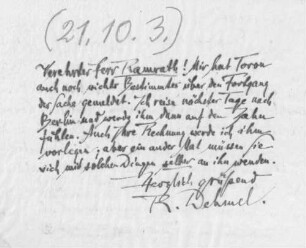 (21.10.3.)
Verehrter Herr Ramrath! Mir hat Toron
auch noch nichts Bestimmtes über den Fortgang
der Sache gemeldet. Ich reise nächster Tage nach
Berlin und werde ihm dann auf den Zahn
fühlen. Auch Ihre Rechnung werde ich ihm
vorlegen; aber ein ander Mal müssen Sie
sich mit solchen Dingen selber an ihn wenden.
Herzlich grüßend
R. Dehmel.